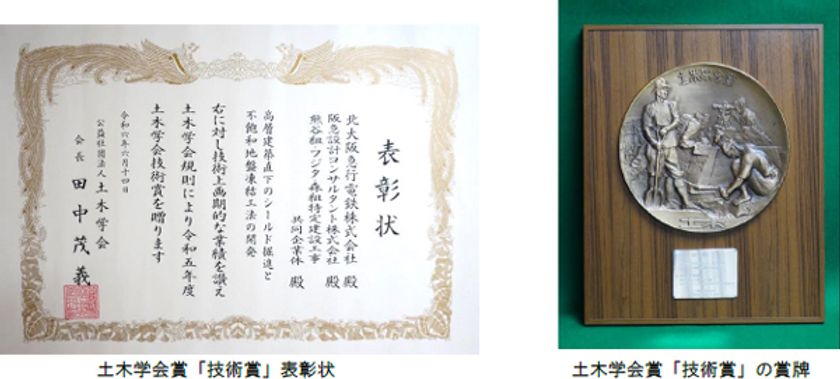 表彰状
北大阪急行電鉄株式会社 殿
阪急設計コンサルタント株式会社 殿
熊谷組・フジタ・森組特定建設工事
共同企業体 殿
高層建築直下のシールド掘進と
不飽和地盤凍結工法の開発
右に対し技術上画期的な業績を讃え
土木学会規則により令和五年度
土木学会技術賞を贈ります
令和六年六月十四日
公益社団法人 土木学会
会長 田中茂義
土木学会賞「技術賞」表彰状
土木学会賞「技術賞」の賞牌